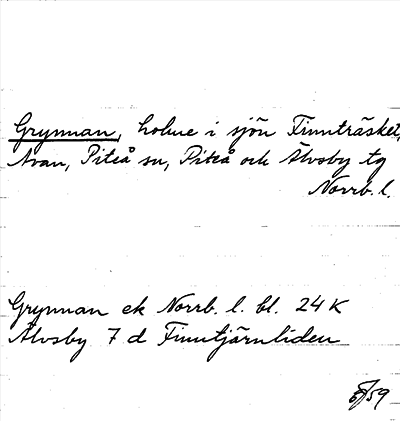 Grynnan, holme i sjön Finnträsket,
Avan, Piteå sn, Piteå och Älvsby tg
Norrb. l.
Grynnan ek Norrb. l. bl. 24 K
Älvsby 7 d Finntjärnliden
/59